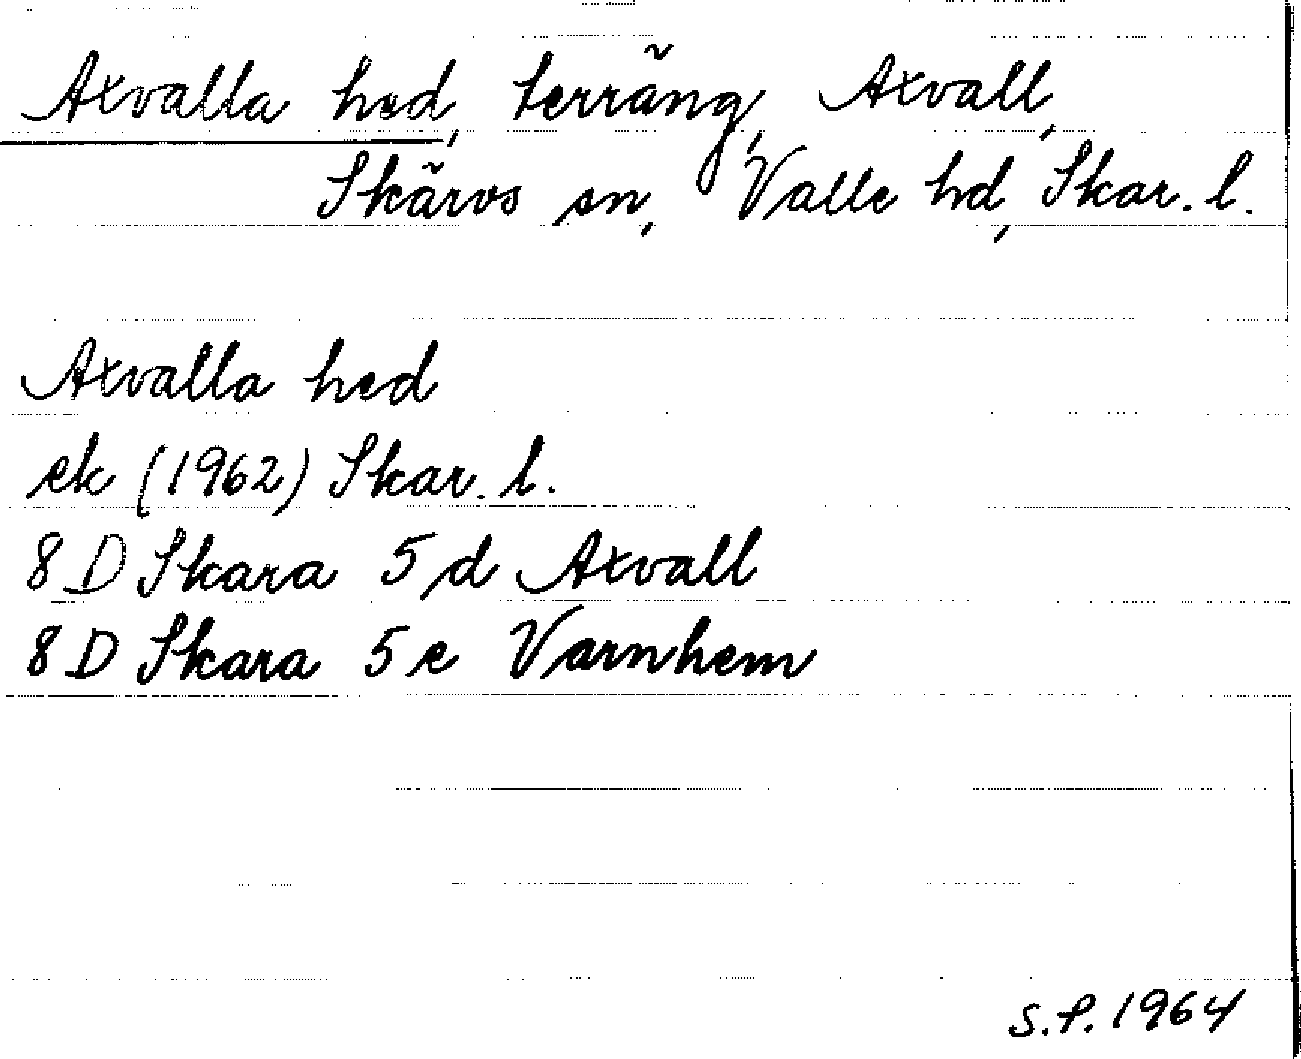 Axvalla hed, terräng, Axvall,
Skärvs sn, Valle hd, Skar. l.
Axvalla hed
ek (1962) Skar. l.
8 D Skara 5 d Axvall
8 D Skara 5 e Varnhem
S.P. 1964